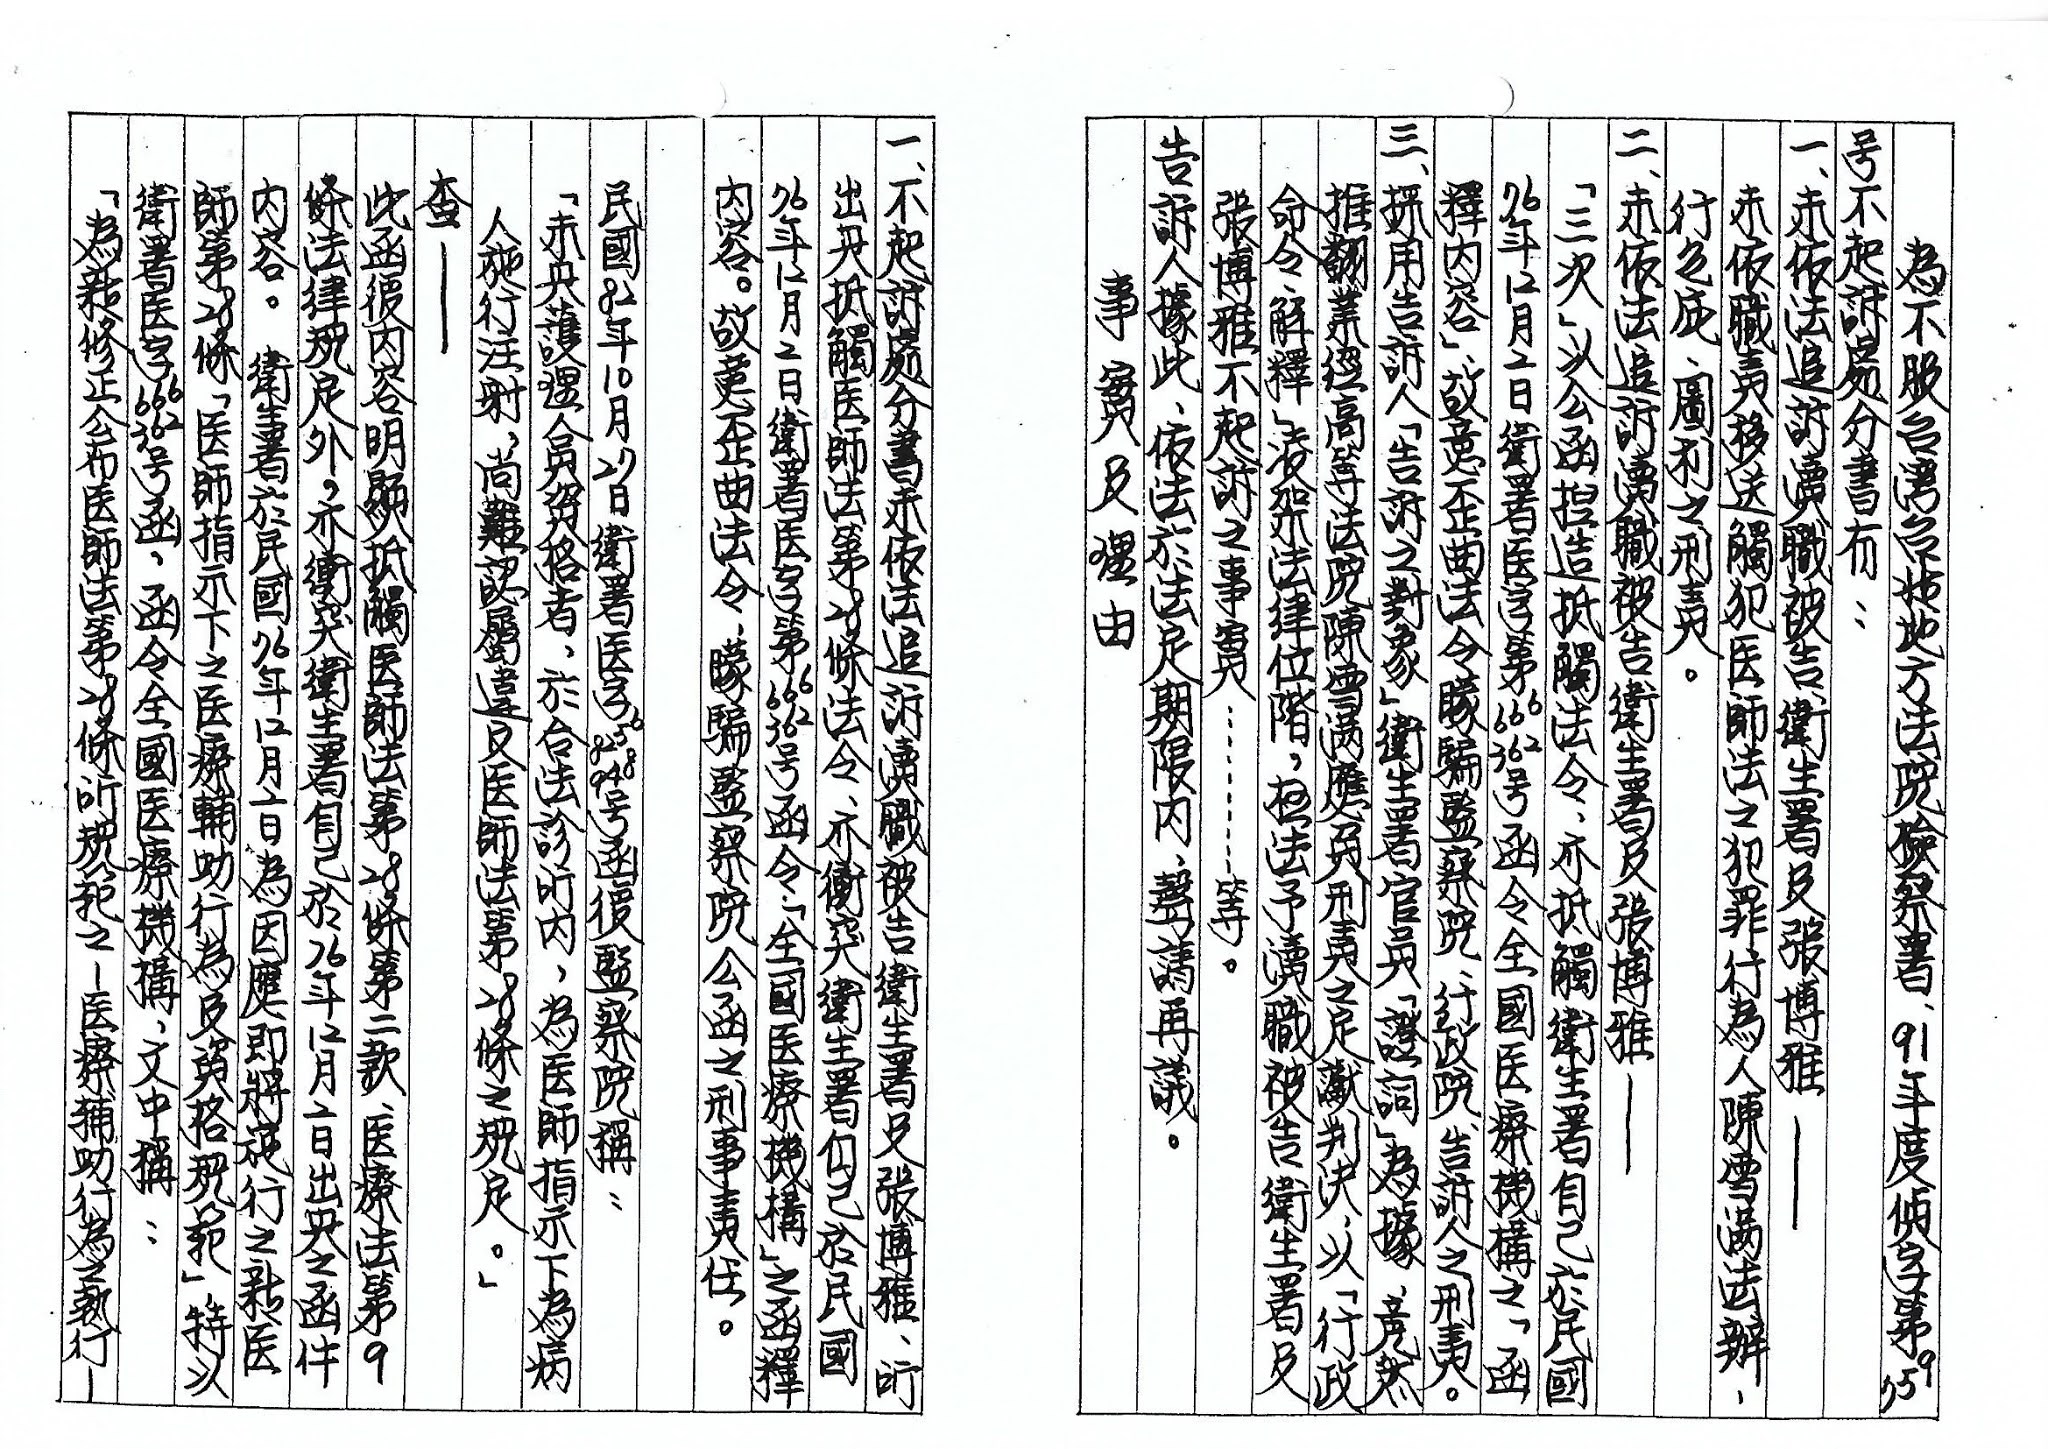 為不服台灣台北地方法院檢察署、91年度偵字第9759
号不起訴處分書有：
一、未依法追訴瀆職被告、衛生署及張博雅——
未依職責移送觸犯医師法之犯罪行為人陳雪滿法辦、
行包庇、圖利之刑責。
二、未依法追訴瀆職被告衛生署及張博雅——
「三次」以公函揑造抵觸法令、亦抵觸衛生署自己於民國
76年12月2日衛署医字第666362号函令全國医療機構之「函
釋內容」、故意歪曲法令矇騙監察院、行政院、告訴人之刑責。
三、採用告訴人「告訴之對象」衛生署官員「證詞」為據、竟然
推翻業經高等法院陳雪滿應負刑責之定讞判決、以「行政
命令、解釋」凌架法律位階，枉法予瀆職被告衛生署及
張博雅不起訴之事實………等。
告訴人據此、依法於法定期限內、聲請再議。
事實及理由
一、不起訴處分書未依法追訴瀆職被告衛生署及張博雅、所
出具抵觸医師法第28條法令、亦衝突衛生署自己於民國
76年12月2日衛署医字第666362号函令：「全國医療機構」之函釋
內容。故意歪曲法令、矇騙監察院公函之刑事責任。
民國82年10月27日衛署医字8256948号函復監察院稱：
「未具護理人員資格者，於合法診所內，為医師指示下為病
人施行注射，尚難認屬違反医師法第28條之規定。」
查——
此函復內容明顯抵觸医師法第28條第二款、医療法第9
條法律規定外，亦衝突衛生署自己於76年12月2日出具之函件
內容。衛生署於民國76年12月2日為因應即將施行之新医
師第28條「医師指示下之医療輔助行為及資格規範」，特以
衛署医字666362号函，函令全國医療機構，文中稱：
「為新修正公布医師法第28條所規範之—医療輔助行為之執行—